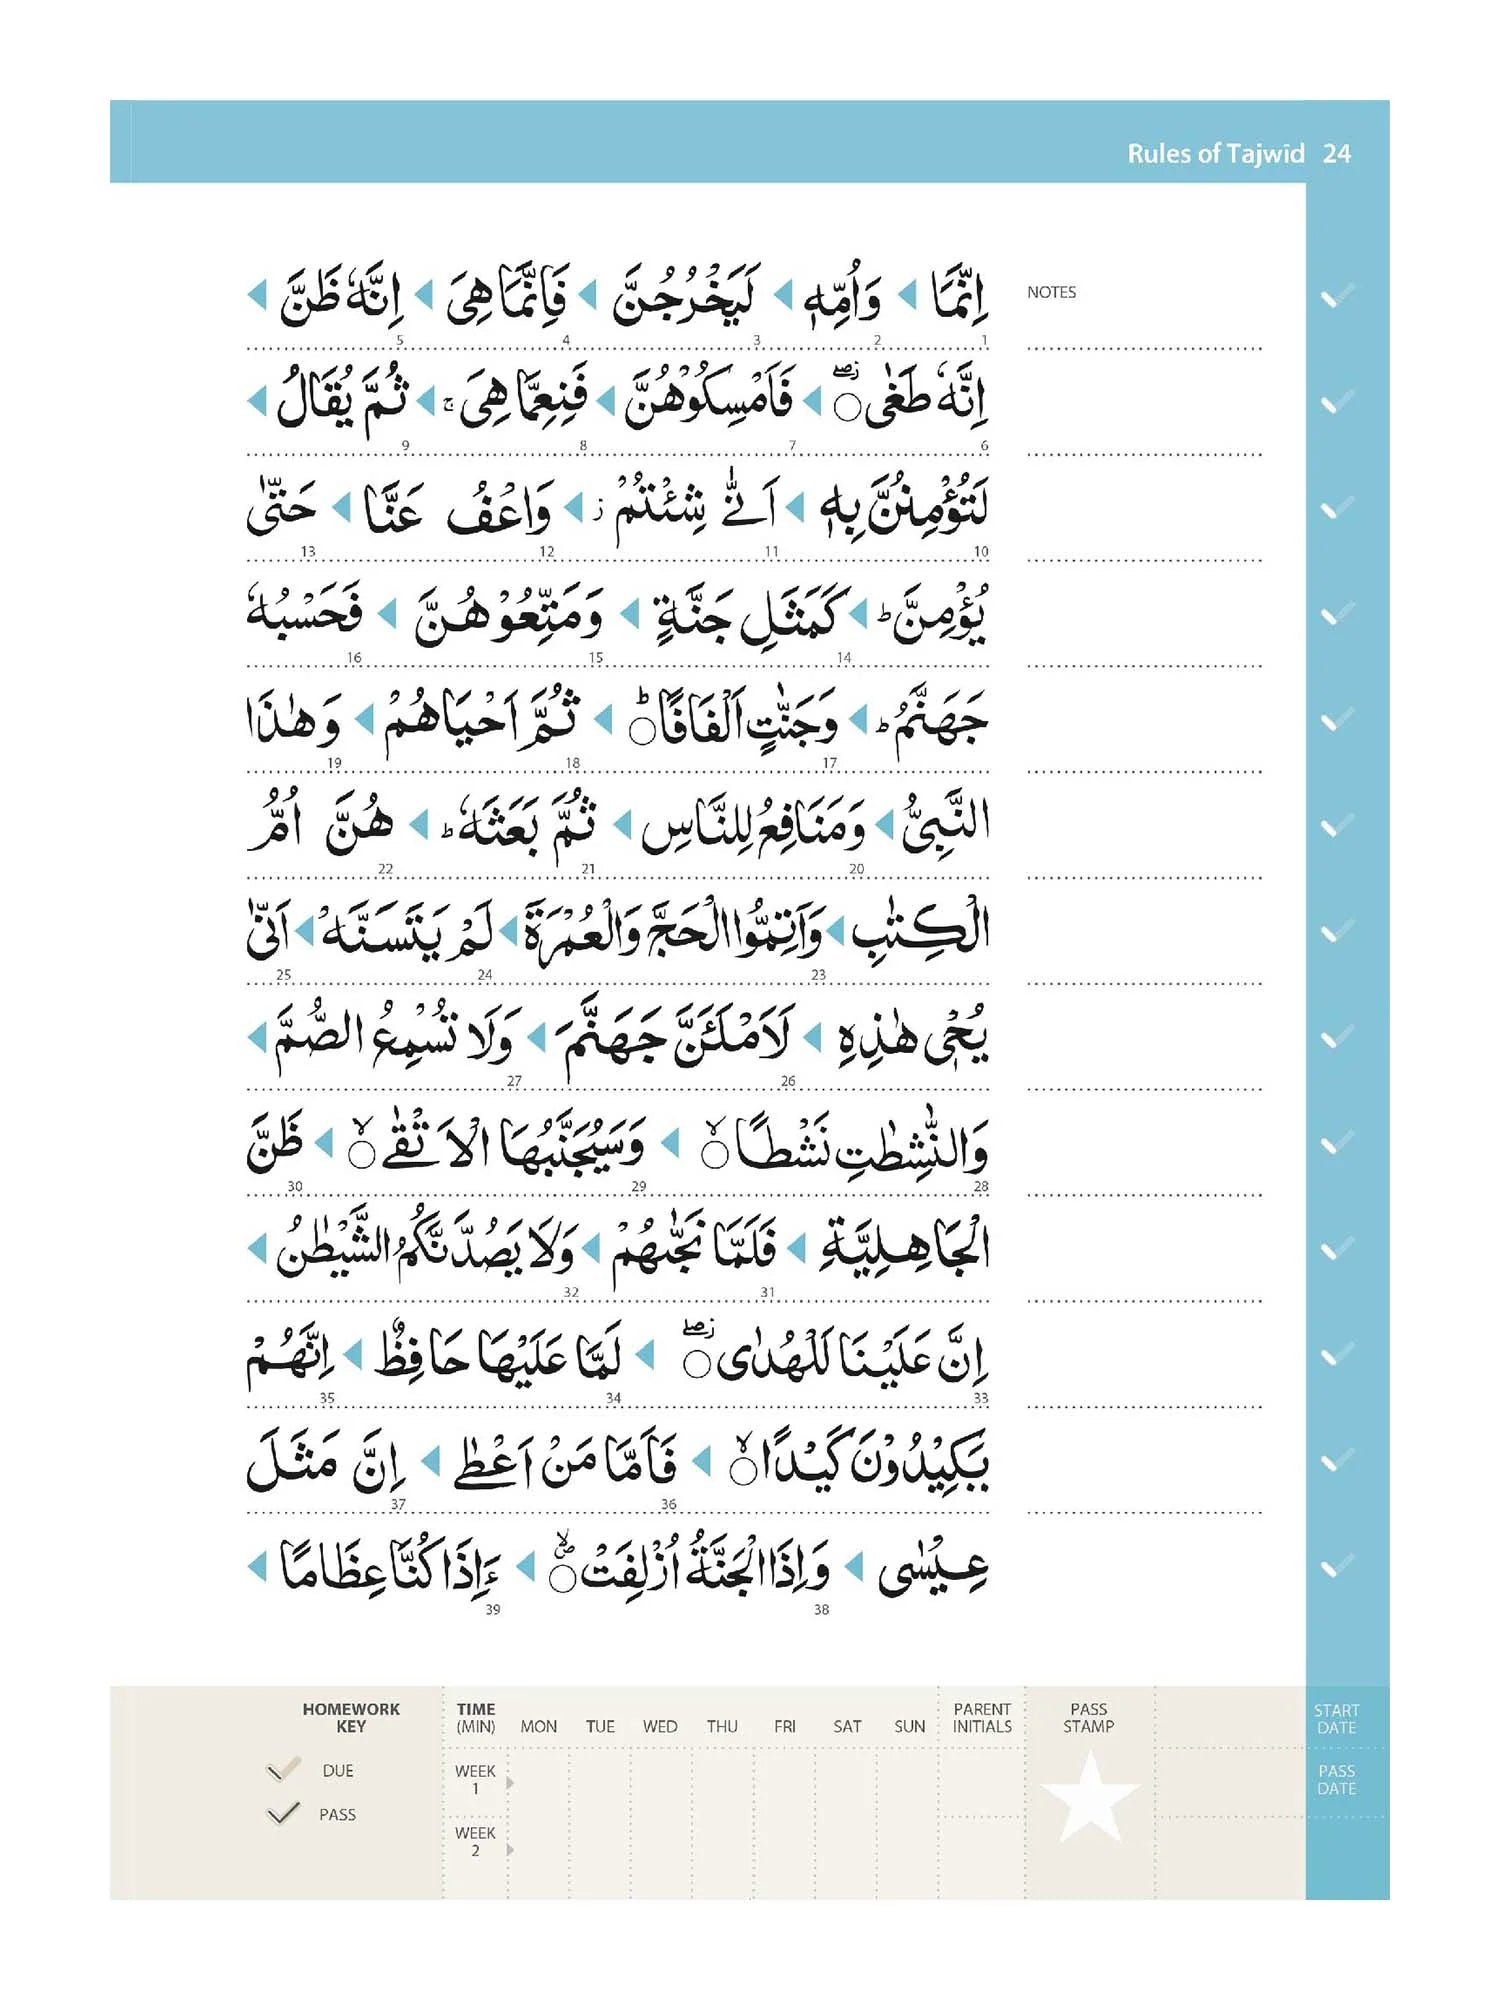 Rules of Tajwīd 24
NOTES
اِنَّمَا ◀ وَاُمِّهٖ ◀ لَيَخْرُجُنَّ ◀ فَاِنَّمَا هِىَ ◀ اِنَّهٗ ظَنَّ ◀
1 2 3 4 5
اِنَّهٗ طَغٰى ۝ ◀ فَاَمْسِكُوْهُنَّ ◀ فَنِعِمَّا هِىَ ۚ ◀ ثُمَّ يُقَالُ ◀
6 7 8 9
لَتُؤْمِنُنَّ بِهٖ ◀ اَنّٰى شِئْتُمْ ز ◀ وَاعْفُ عَنَّا ◀ حَتّٰى
10 11 12 13
يُؤْمِنَّ ؕ ◀ كَمَثَلِ جَنَّةٍ ◀ وَمَتِّعُوْهُنَّ ◀ فَحَسْبُهٗ
14 15 16
جَهَنَّمُ ؕ ◀ وَجَنّٰتٍ اَلْفَافًا ۝ؕ ◀ ثُمَّ اَحْيَاهُمْ ◀ وَهٰذَا
17 18 19
النَّبِىُّ ◀ وَمَنَافِعُ لِلنَّاسِ ◀ ثُمَّ بَعَثَهٗ ؕ ◀ هُنَّ اُمُّ
20 21 22
الْكِتٰبِ ◀ وَاَتِمُّوا الْحَجَّ وَالْعُمْرَةَ ◀ لَمْ يَتَسَنَّهْ ◀ اَنّٰى
23 24 25
يُحْىٖ هٰذِهِ ◀ لَاَمْلَـَٔنَّ جَهَنَّمَ ◀ وَلَا تُسْمِعُ الصُّمَّ ◀
26 27
وَالنّٰشِطٰتِ نَشْطًا ۝ۙ ◀ وَسَيُجَنَّبُهَا الْاَتْقٰى ۝ۙ ◀ ظَنَّ
28 29 30
الْجَاهِلِيَّةِ ◀ فَلَمَّا نَجّٰىهُمْ ◀ وَلَا يَصُدَّنَّكُمُ الشَّيْطٰنُ ◀
31 32
اِنَّ عَلَيْنَا لَلْهُدٰى ۝ ◀ لَمَّا عَلَيْهَا حَافِظٌ ◀ اِنَّهُمْ
33 34 35
يَكِيْدُوْنَ كَيْدًا ۝ۙ ◀ فَاَمَّا مَنْ اَعْطٰى ◀ اِنَّ مَثَلَ
36 37
عِيْسٰى ◀ وَاِذَا الْجَنَّةُ اُزْلِفَتْ ۝ ◀ ءَاِذَا كُنَّا عِظَامًا ◀
38 39
HOMEWORK KEY
DUE
PASS
TIME (MIN) MON TUE WED THU FRI SAT SUN PARENT INITIALS PASS STAMP START DATE
WEEK 1 PASS DATE
WEEK 2